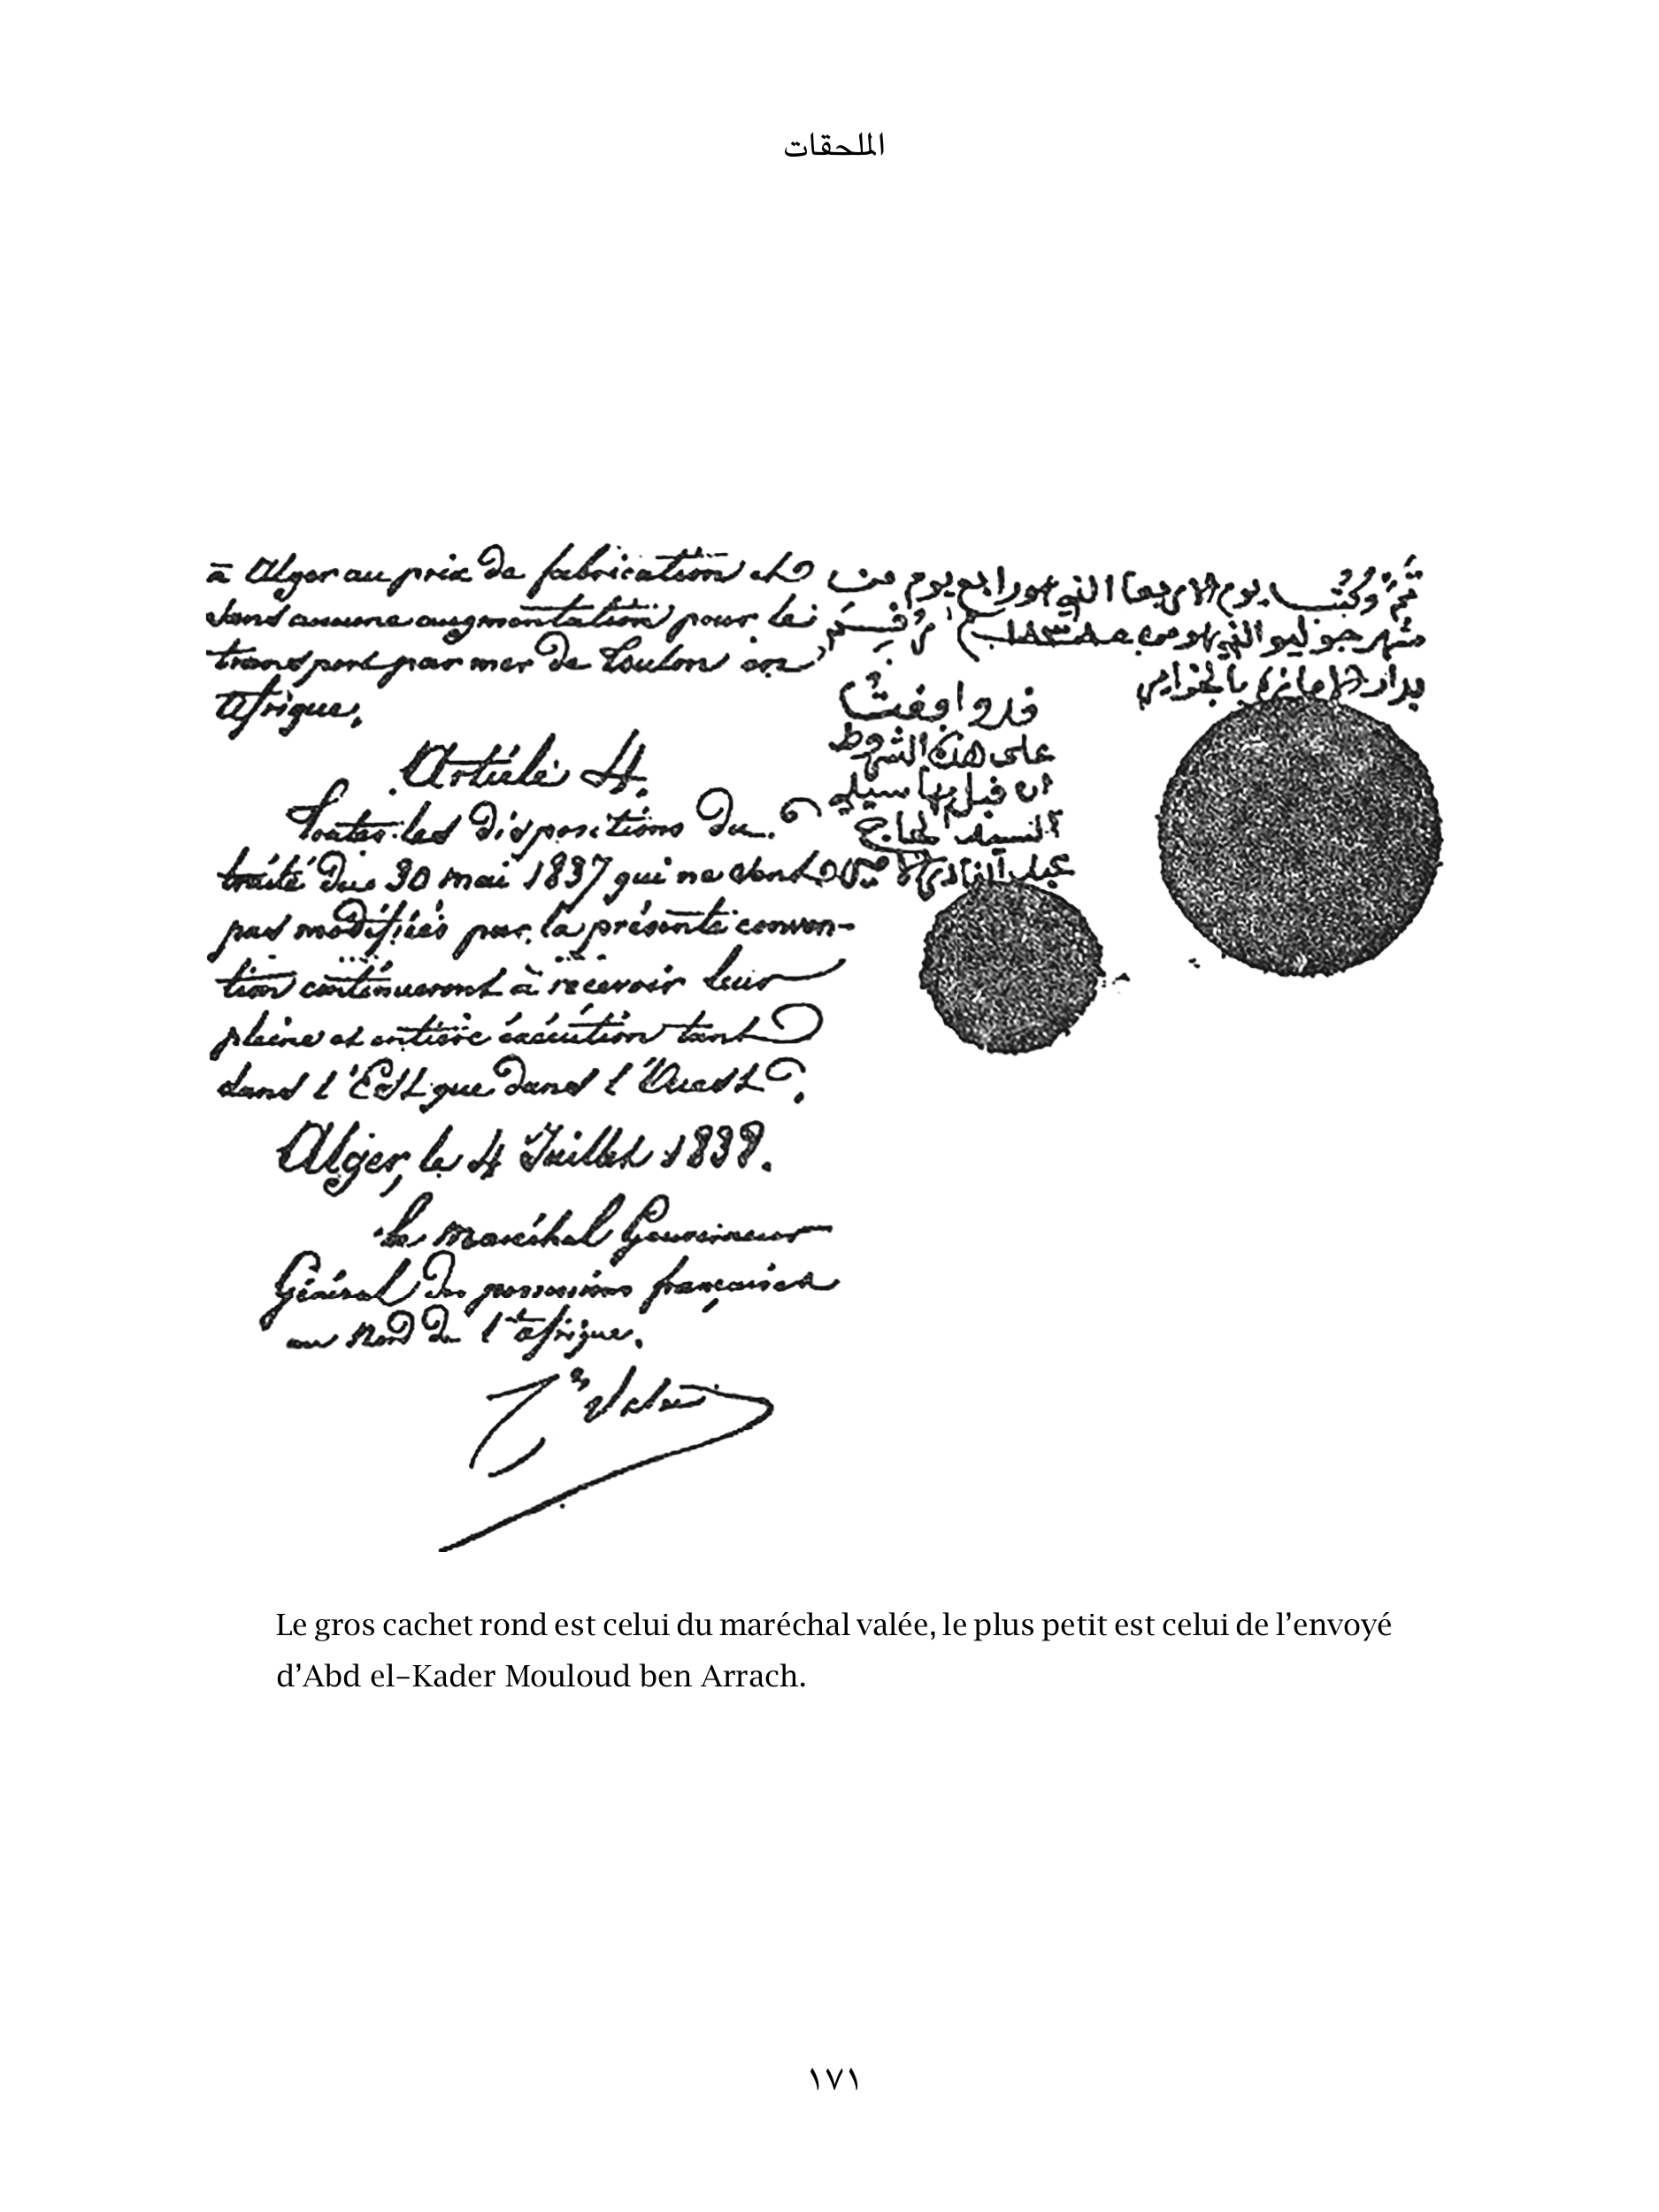 الملحقات
à Alger au prix de fabrication et
sans aucune augmentation pour le
transport par mer de Toulon en
Afrique.
Article 4.
Toutes les dispositions du
traité du 30 mai 1837 qui ne sont
pas modifiées par la présente conven-
tion continueront à recevoir leur
pleine et entière exécution tant
dans l'Est que dans l'Ouest.
Alger, le 4 Juillet 1838.
Le maréchal Gouverneur
Général des possessions françaises
au Nord de l'Afrique.
Valée
ثم وكتب يوم الاربعا الذي هو رابع يوم من
شهر جوليو الذي هو من
بدار بالجزاير
قد وافقت
على هذه الشروط
ان قبل بها سيدي
السيد الحاج
عبد القادر
Le gros cachet rond est celui du maréchal valée, le plus petit est celui de l’envoyé
d’Abd el–Kader Mouloud ben Arrach.
١٧١